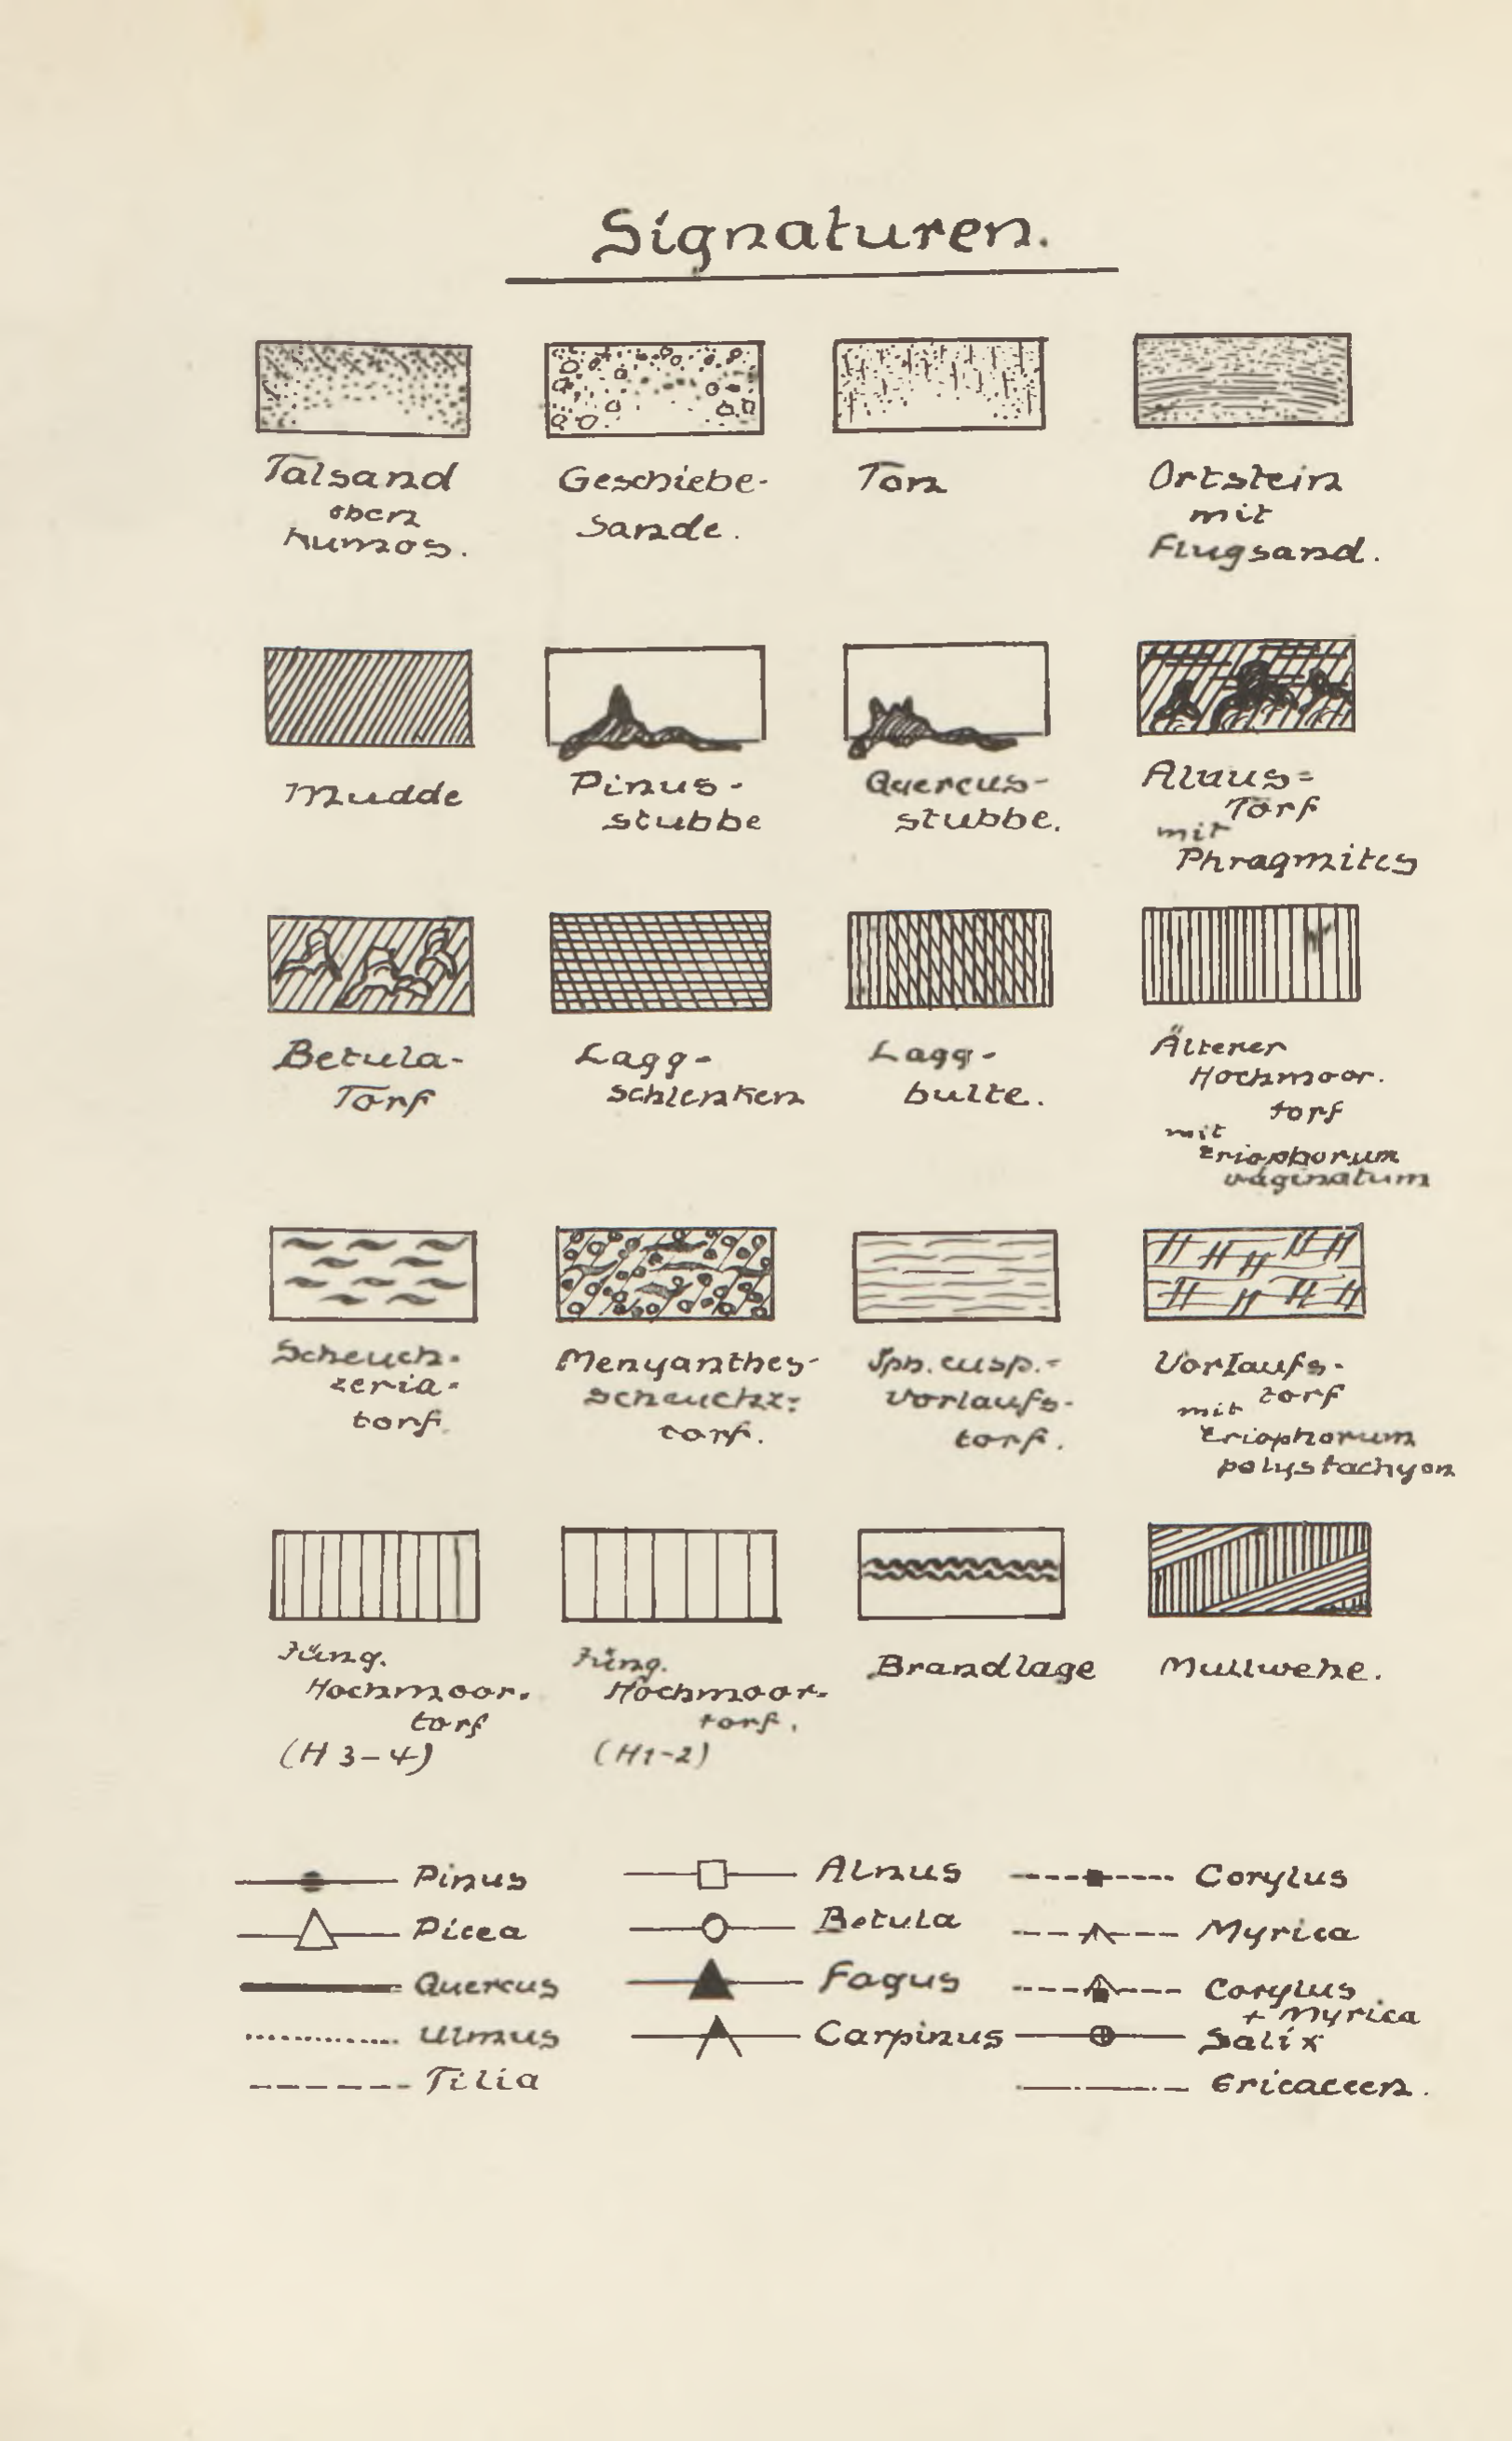 Signaturen.
Talsand
oben
humos.
Geschiebe-
Sande.
Ton
Ortstein
mit
Flugsand.
Mudde
Pinus-
stubbe
Quercus-
stubbe.
Alnus=
Torf
mit
Phragmites
Betula-
Torf
Lagg-
schlenken
Lagg-
bulte.
Älterer
Hochmoor.
torf
mit
Eriophorum
vaginatum
Scheuch-
zeria-
torf.
Menyanthes-
Scheuchz:
torf.
Sph. cusp.-
Vorlaufs-
torf.
Vorlaufs-
torf
mit
Eriophorum
polystachyon
Jüng.
Hochmoor.
torf
(H 3-4)
Jüng.
Hochmoor-
torf.
(H1-2)
Brandlage
Mullwehe.
Pinus
Picea
Quercus
Ulmus
Tilia
Alnus
Betula
Fagus
Carpinus
Corylus
Myrica
Corylus
+ Myrica
Salix
Ericaceen.